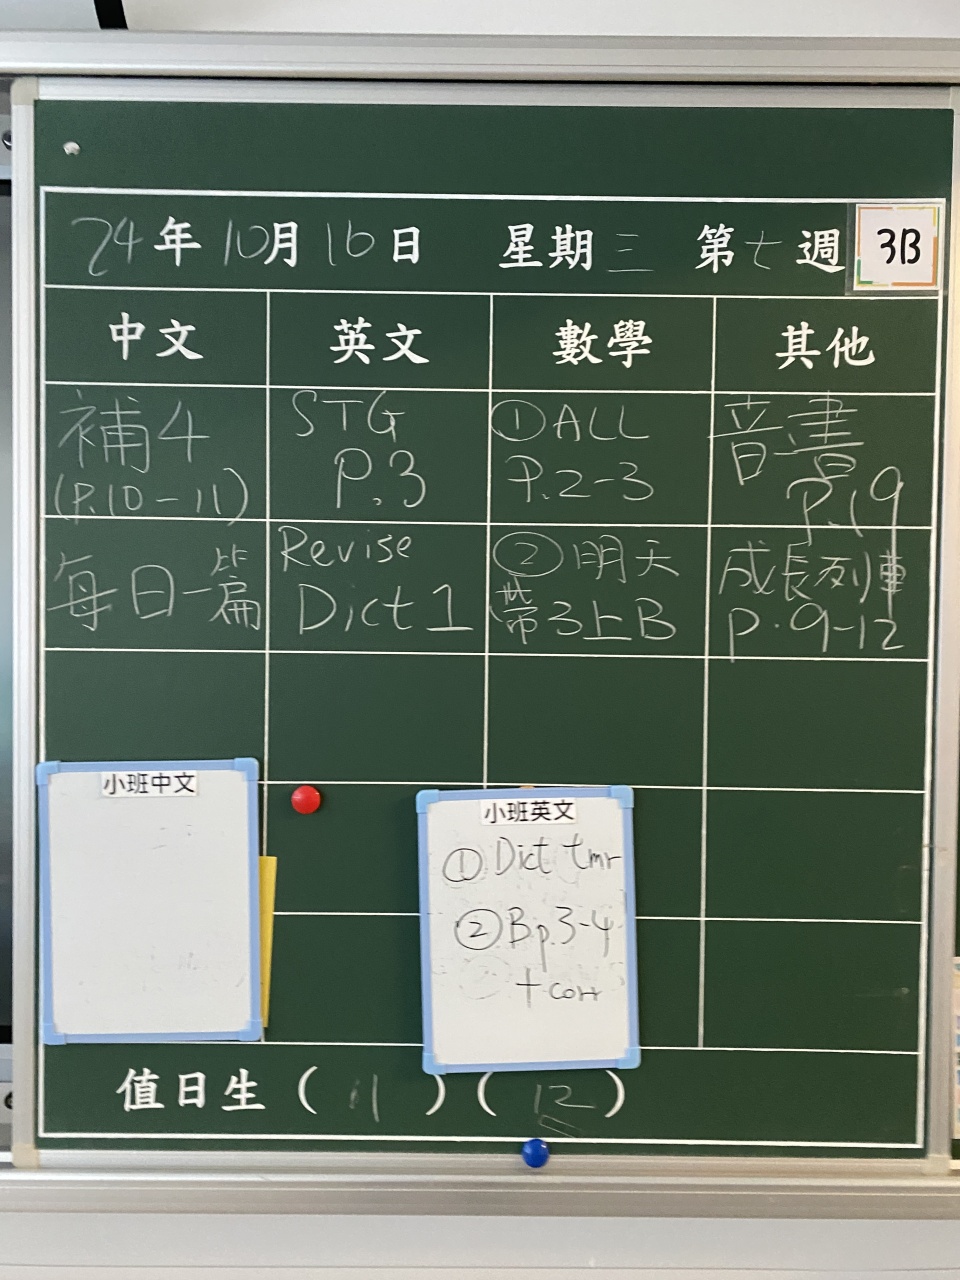 24年10月16日 星期三 第七週 3B
中文 英文 數學 其他
補4
(P.10-11)
STG
P.3
①ALL
P.2-3
音書
P.19
每日一篇
Revise
Dict 1
②明天
帶3上B
成長列車
P.9-12
小班中文
小班英文
①Dict tmr
②Bp.3-4
+corr
值日生(11)(12)